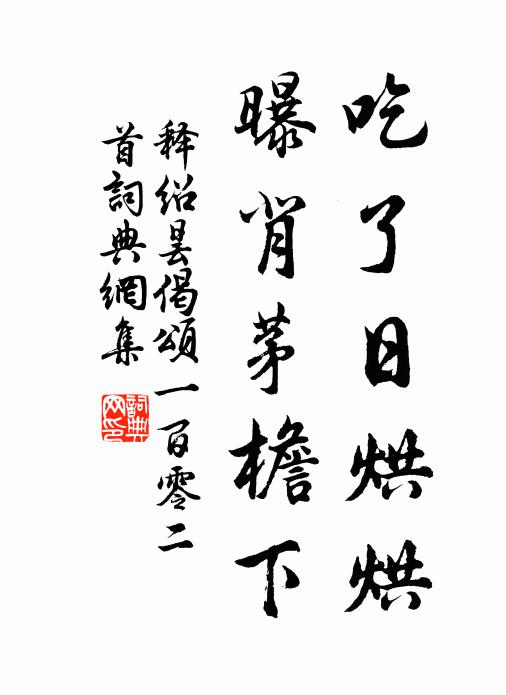 吃了日烘烘
曝背茅檐下
释绍昙偈頌一百零二
首詞典網集
詞典网印